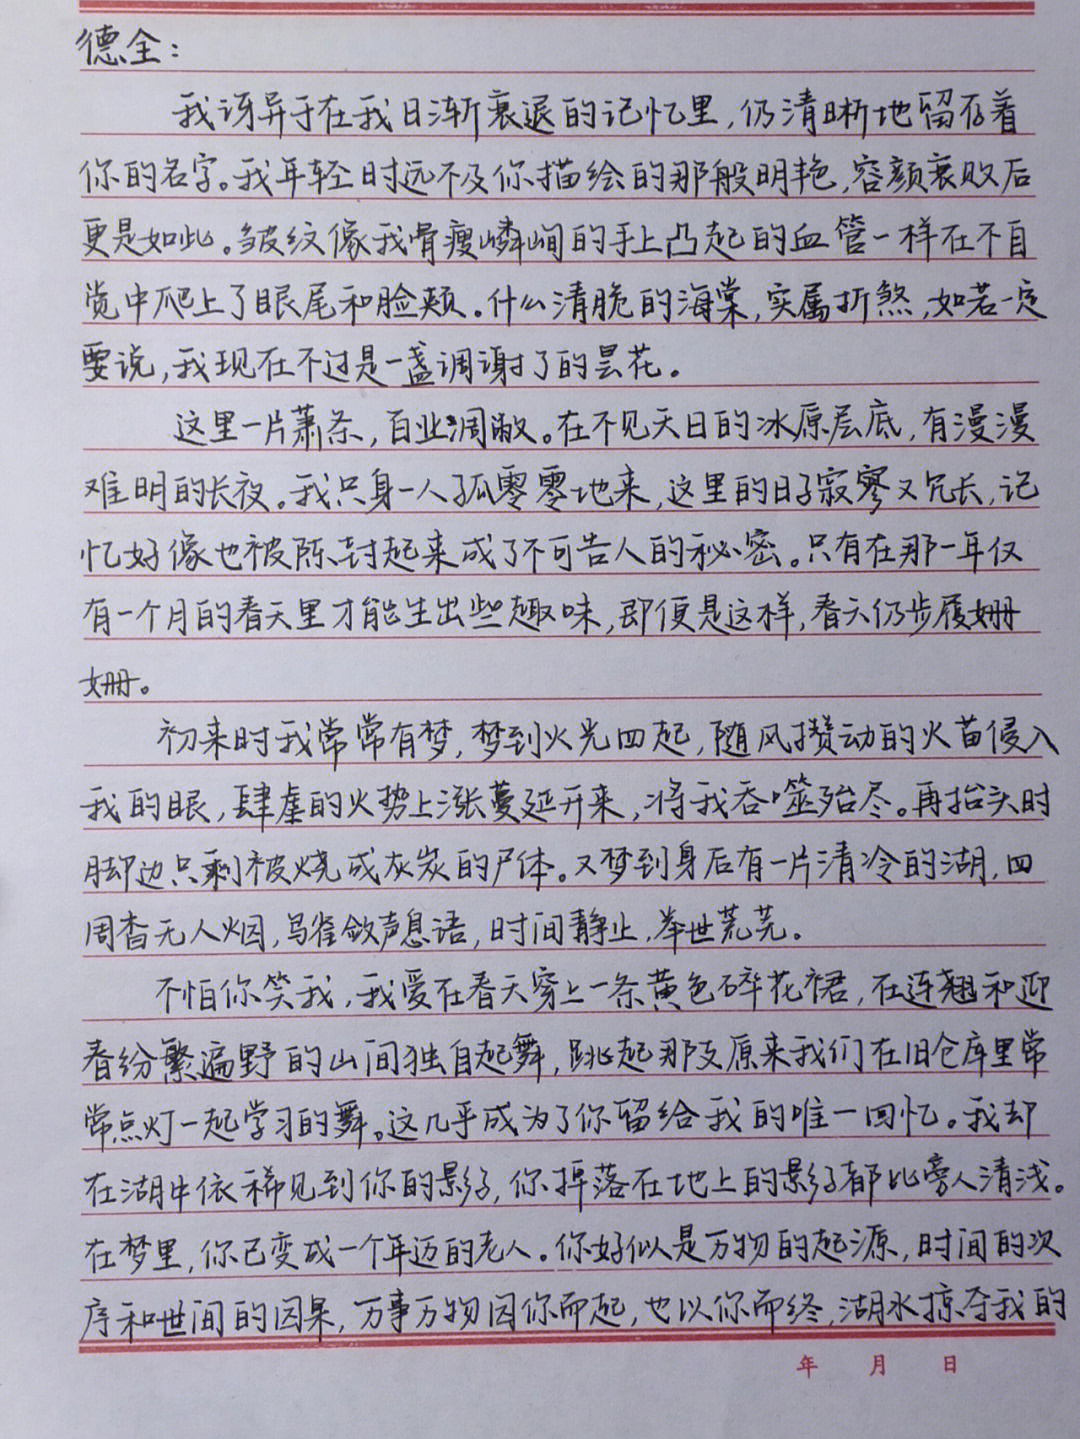 德全：
我讶异于在我日渐衰退的记忆里，仍清晰地留存着
你的名字。我年轻时远不及你描绘的那般明艳，容颜衰败后
更是如此。皱纹像我骨瘦嶙峋的手上凸起的血管一样在不自
觉中爬上了眼尾和脸颊。什么清脆的海棠，实属折煞，如若一定
要说，我现在不过是一盏调谢了的昙花。
这里一片萧条，百业凋敝。在不见天日的冰原层底，有漫漫
难明的长夜。我只身一人孤零零地来，这里的日子寂寥又冗长，记
忆好像也被陈封起来成了不可告人的秘密。只有在那一年仅
有一个月的春天里才能生出些趣味，即便是这样，春天仍步履姗
姗。
初来时我常常有梦，梦到火光四起，随风攒动的火苗侵入
我的眼，肆虐的火势上涨蔓延开来，将我吞噬殆尽。再抬头时
脚边只剩被烧成灰炭的尸体。又梦到身后有一片清冷的湖，四
周杳无人烟，鸟雀敛声息语，时间静止，举世荒芜。
不怕你笑我，我爱在春天穿上一条黄色碎花裙，在连翘和迎
春纷繁遍野的山间独自起舞，跳起那支原来我们在旧仓库里常
常点灯一起学习的舞。这几乎成为了你留给我的唯一回忆。我却
在湖中依稀见到你的影子，你掉落在地上的影子都比旁人清浅。
在梦里，你已变成一个年迈的老人。你好似是万物的起源，时间的次
序和世间的因果，万事万物因你而起，也以你而终，湖水掠夺我的
年 月 日